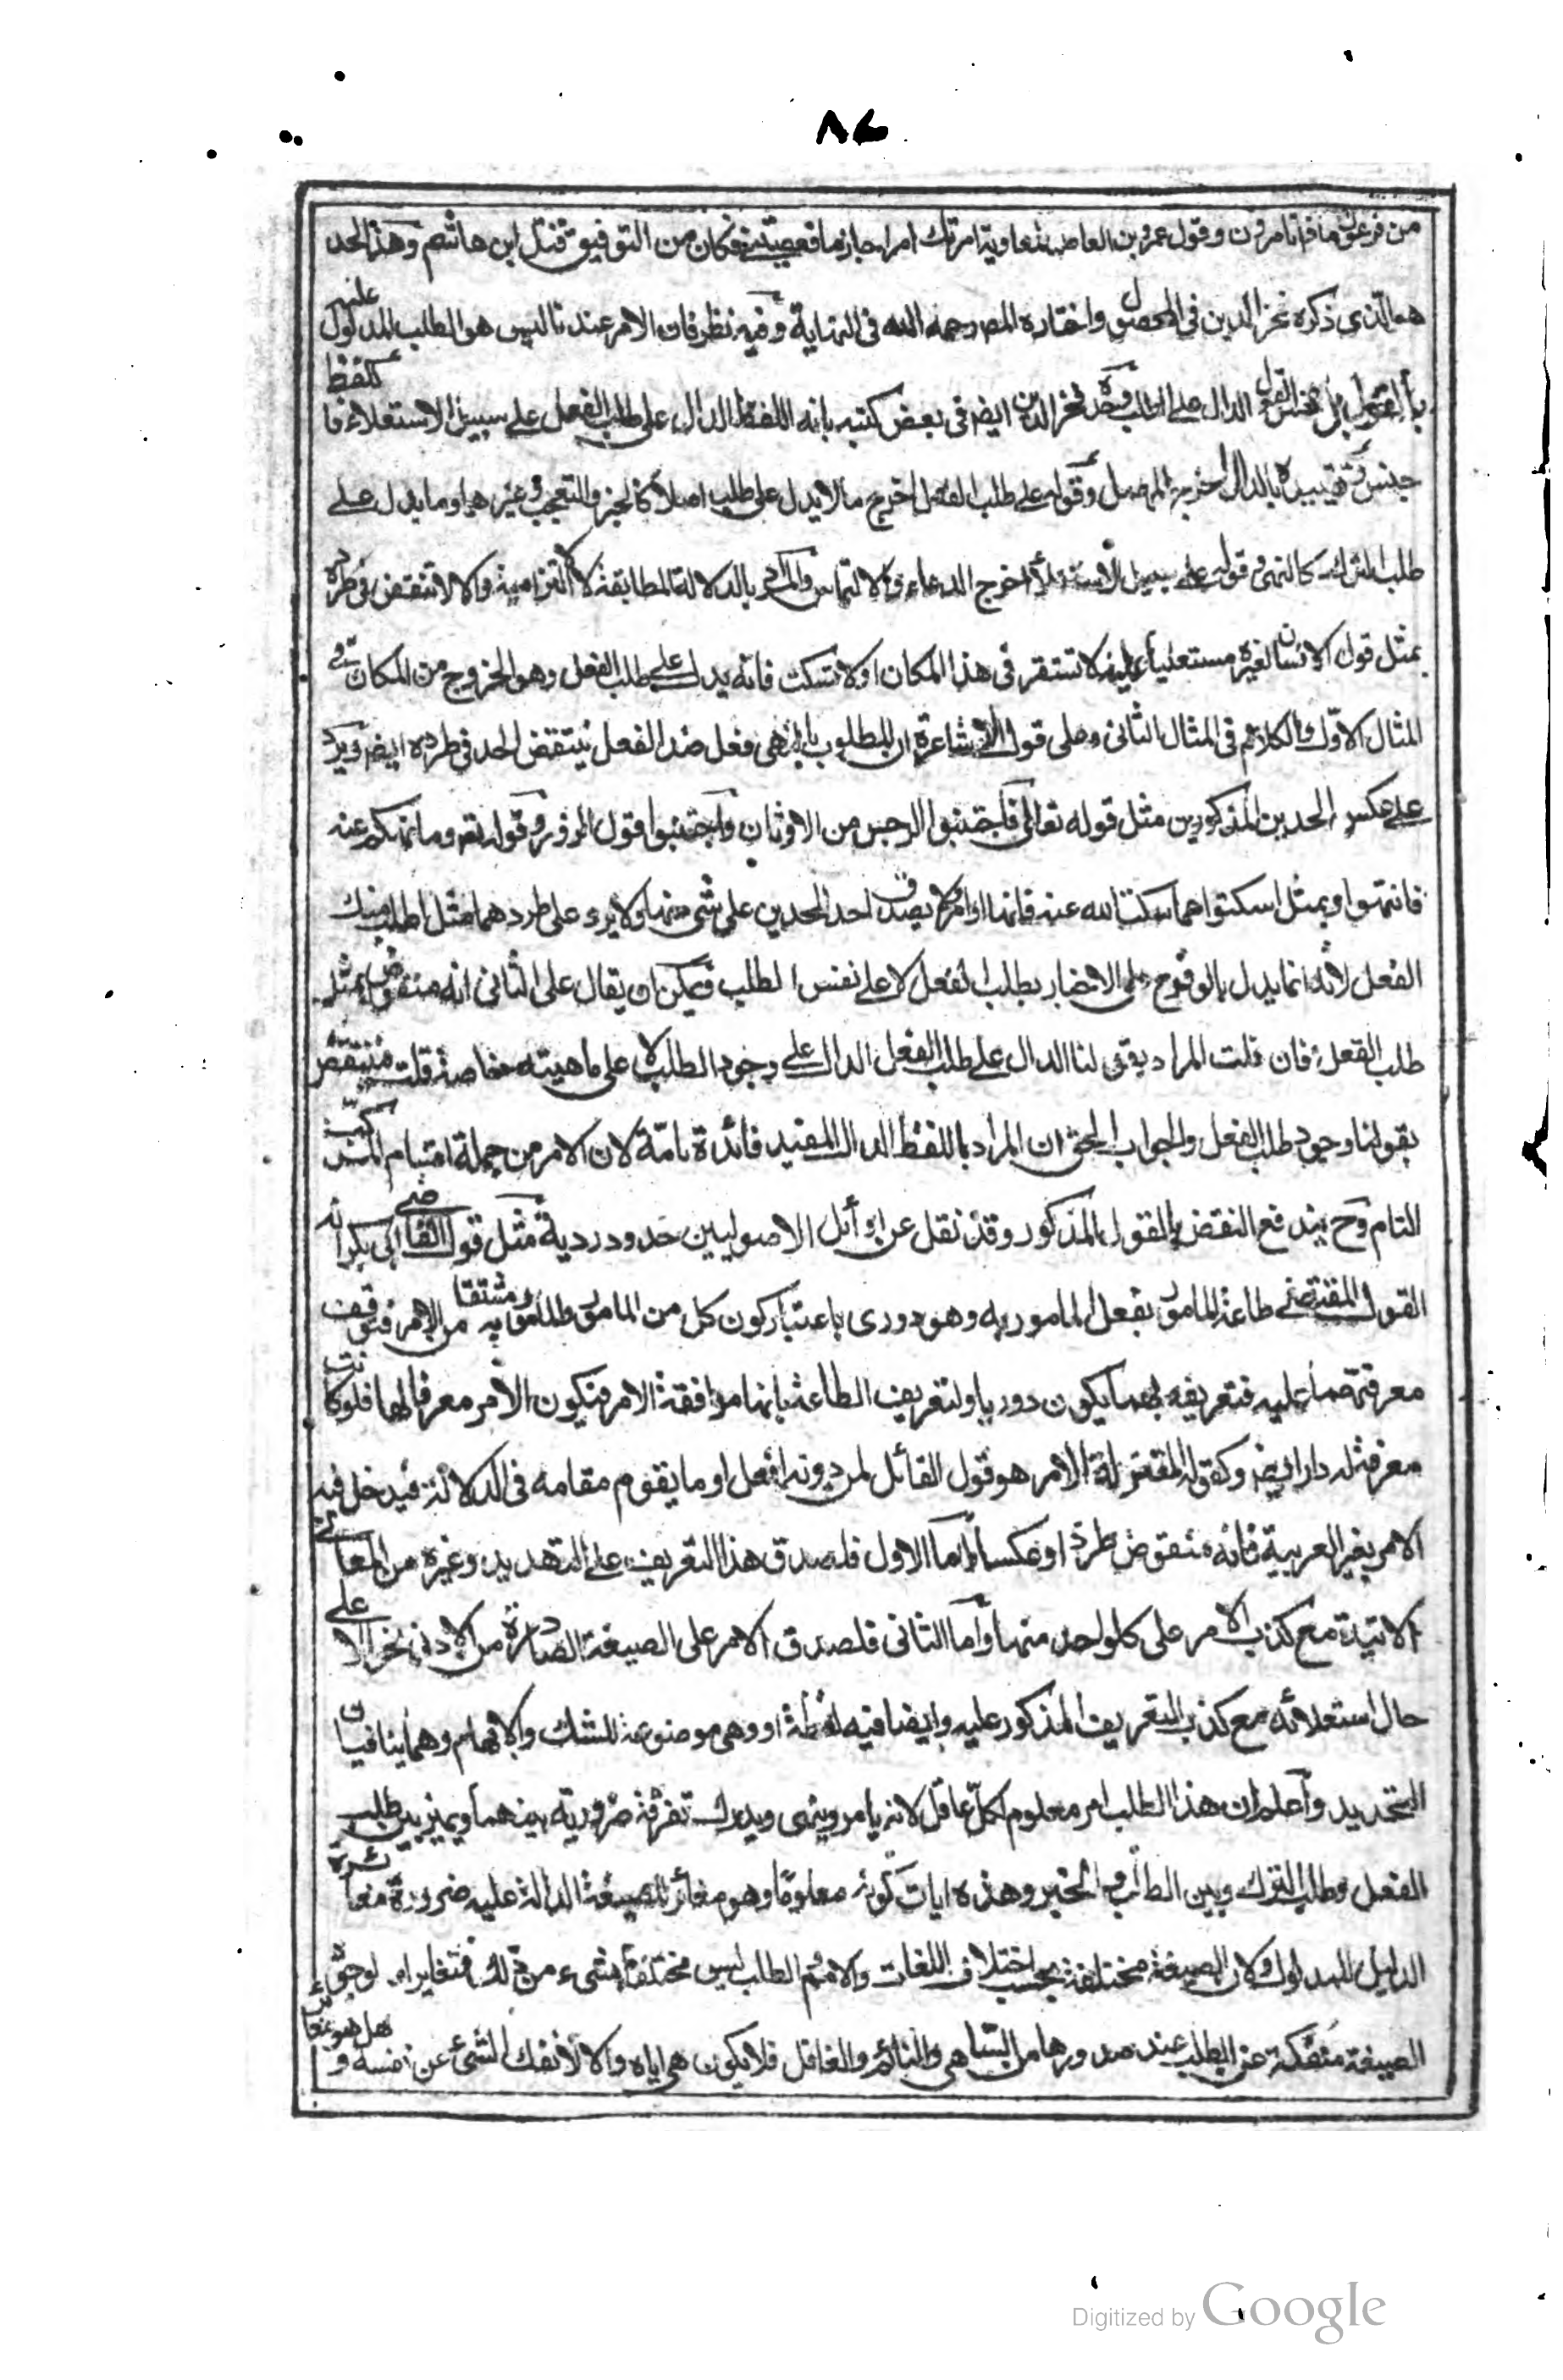 ٨٧
من فرعون ماذا تأمرون وقول عمرو بن العاص لمعاوية امرتك امرا جازما فعصيتني فكان من التوفيق قتل ابن هاشم وهذا الحد
هو الذي ذكره فخر الدين في المحصول واختاره المصر رحمه الله في النهاية وفيه نظر فان الامر عندنا ليس هو الطلب المدلول عليه
بالقول بل نفس القول الدال على الطلب وحده فخر الدين ايضا في بعض كتبه بانه اللفظ الدال على طلب الفعل على سبيل الاستعلاء فاللفظ
جنس وتقييده بالدال اخرج المهمل وقوله على طلب الفعل اخرج ما لا يدل على طلب اصلا كالخبر والتعجب وغيرهما وما يدل على
طلب الترك كالنهي وقوله على سبيل الاستعلاء اخرج الدعاء والالتماس والمراد بالدلالة المطابقة لا التزامية والا لانتقض في طرده
بمثل قول الانسان لغيره مستعليا عليه لا تستقر في هذا المكان او لا تسكت فانه يدل على طلب الفعل وهو الخروج من المكان في
المثال الاول والكلام في المثال الثاني وعلى قول الاشاعرة ان المطلوب بالنهي فعل ضد الفعل ينتقض الحد في طرده ايضا ويرد
على عكس الحدين المذكورين مثل قوله تعالى فاجتنبوا الرجس من الاوثان واجتنبوا قول الزور وقوله تعم وما نهيكم عنه
فانتهوا وبمثل اسكتوا عما سكت الله عنه فانها اوامر ولا يصدق احد الحدين على شئ منها ولا يرد على طردهما مثل اطلب منك
الفعل لانه انما يدل بالوقوع على الاخبار بطلب الفعل لا على نفس الطلب ويمكن ان يقال على الثاني انه منقوض بمثل
طلب الفعل فان قلت المراد بقولنا الدال على طلب الفعل الدال على وجود الطلب لا على ماهيته خاصة قلت منتقض
بقولنا وجود طلب الفعل والجواب الحق ان المراد باللفظ الدال المفيد فائدة تامة لان الامر من جملة اقسام المركب
التام وح يندفع النقض بالقول المذكور وقد نقل عن اوائل الاصوليين حدود ردية مثل قول القاضي ابي بكر انه
القول المقتضي طاعة المامور بفعل المامور به وهو دوري باعتبار كون كل من المامور والمامور به مشتقا من الامر فتوقف
معرفتهما عليه فتعريفه بهما يكون دوريا ولتعريف الطاعة بانها موافقة الامر فيكون الامر معرفا لها فلو كانت
معرفة له دار ايضا وكقول المعتزلة الامر هو قول القائل لمن دونه افعل او ما يقوم مقامه في الدلالة فيدخل فيه
الامر بغير العربية فانه منقوض طردا وعكسا اما الاول فلصدق هذا التعريف على التهديد وغيره من المعاني
الاتية مع كذب الامر على كل واحد منها واما الثاني فلصدق الامر على الصيغة الصادرة من الادنى نحو الاعلى
حال استعلائه مع كذب التعريف المذكور عليه وايضا فيه لفظة او وهي موضوعة للشك والابهام وهما ينافيان
التحديد واعلم ان هذا الطلب امر معلوم لكل عاقل لانه يامر وينهى ويدرك تفرقة ضرورية بينهما ويميز بين طلب
الفعل وطلب الترك وبين الطلب والخبر وهذه ايات كونه معلوما وهو مغائر للصيغة الدالة عليه ضرورة مغائرة
الدليل للمدلول ولان الصيغة مختلفة بحسب اختلاف اللغات والامم والطلب ليس مختلفا بشيء من ذلك فتغايرا و لوجود
الصيغة منفكة عن الطلب عند صدورها من الساهي والنائم والغافل فلا يكون هي اياه والا لانفك الشئ عن نفسه و هل هو مغاير
Digitized by Google